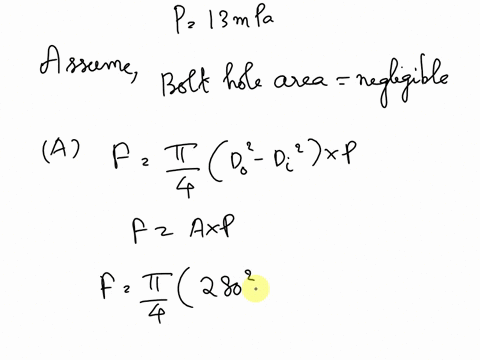 P = 13 mPa
Assume,
Bolt hole area = negligible
(A) F = π/4 (D₀² - Dᵢ²) × P
F = A×P
F = π/4 ( 280²